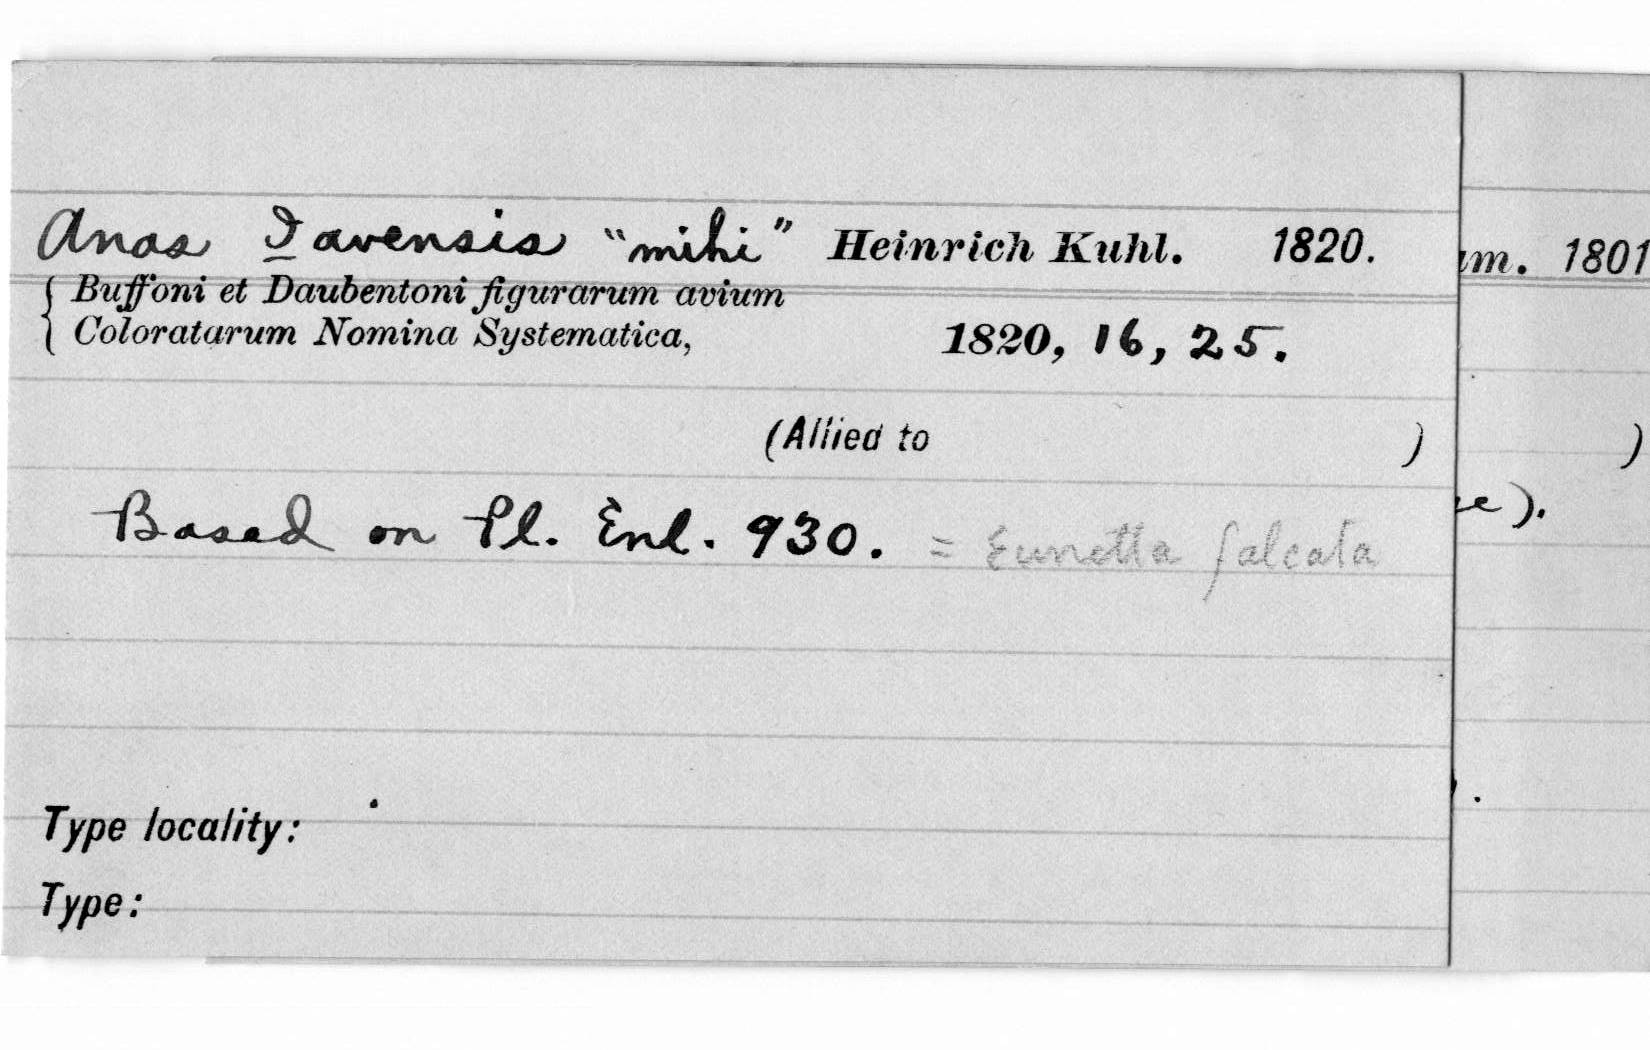 Anas Iavensis "mihi" Heinrich Kuhl. 1820.
{ Buffoni et Daubentoni figurarum avium
Coloratarum Nomina Systematica, 1820, 16, 25.
(Allied to )
Based on Pl. Enl. 930. = Eunetta falcata
Type locality:
Type:
m. 1801
)
e).